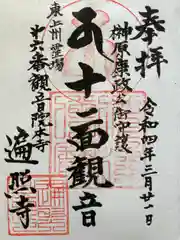 奉拝
榊原康政公御守護
令和四年三月廿一日
十一面観音
東上州霊場
十六番観音院本寺
遍照寺